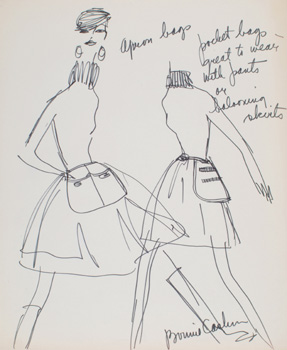 apron bags
pocket bags
great to wear
with pants
or
balooning
skirts
Bonnie Cashin